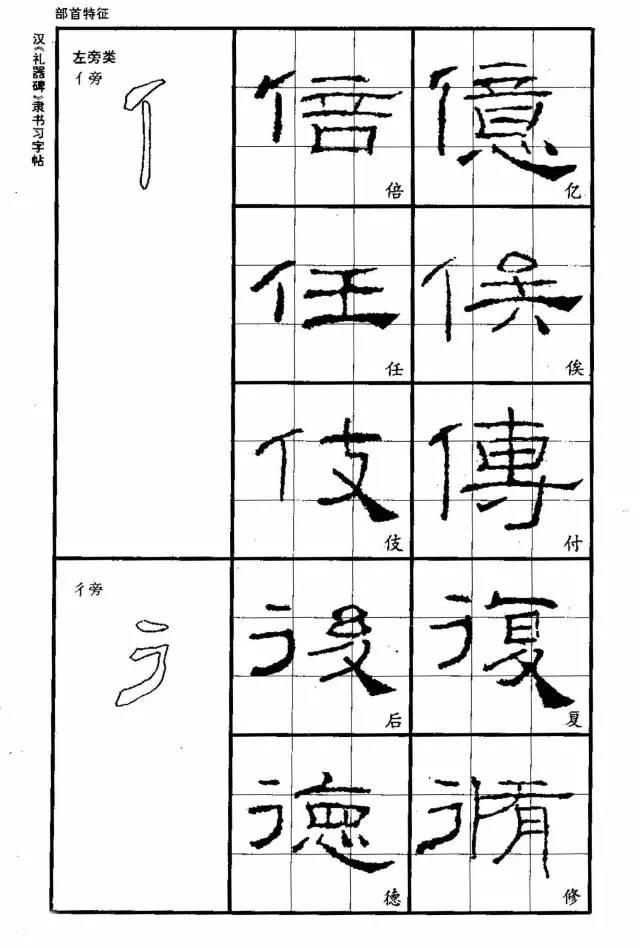 部首特征
汉《礼器碑》隶书习字帖
左旁类
亻旁
亻
倍 億
倍 亿
任 俟
任 俟
伎 傳
伎 付
彳旁
彳
後 復
后 复
德 脩
德 修